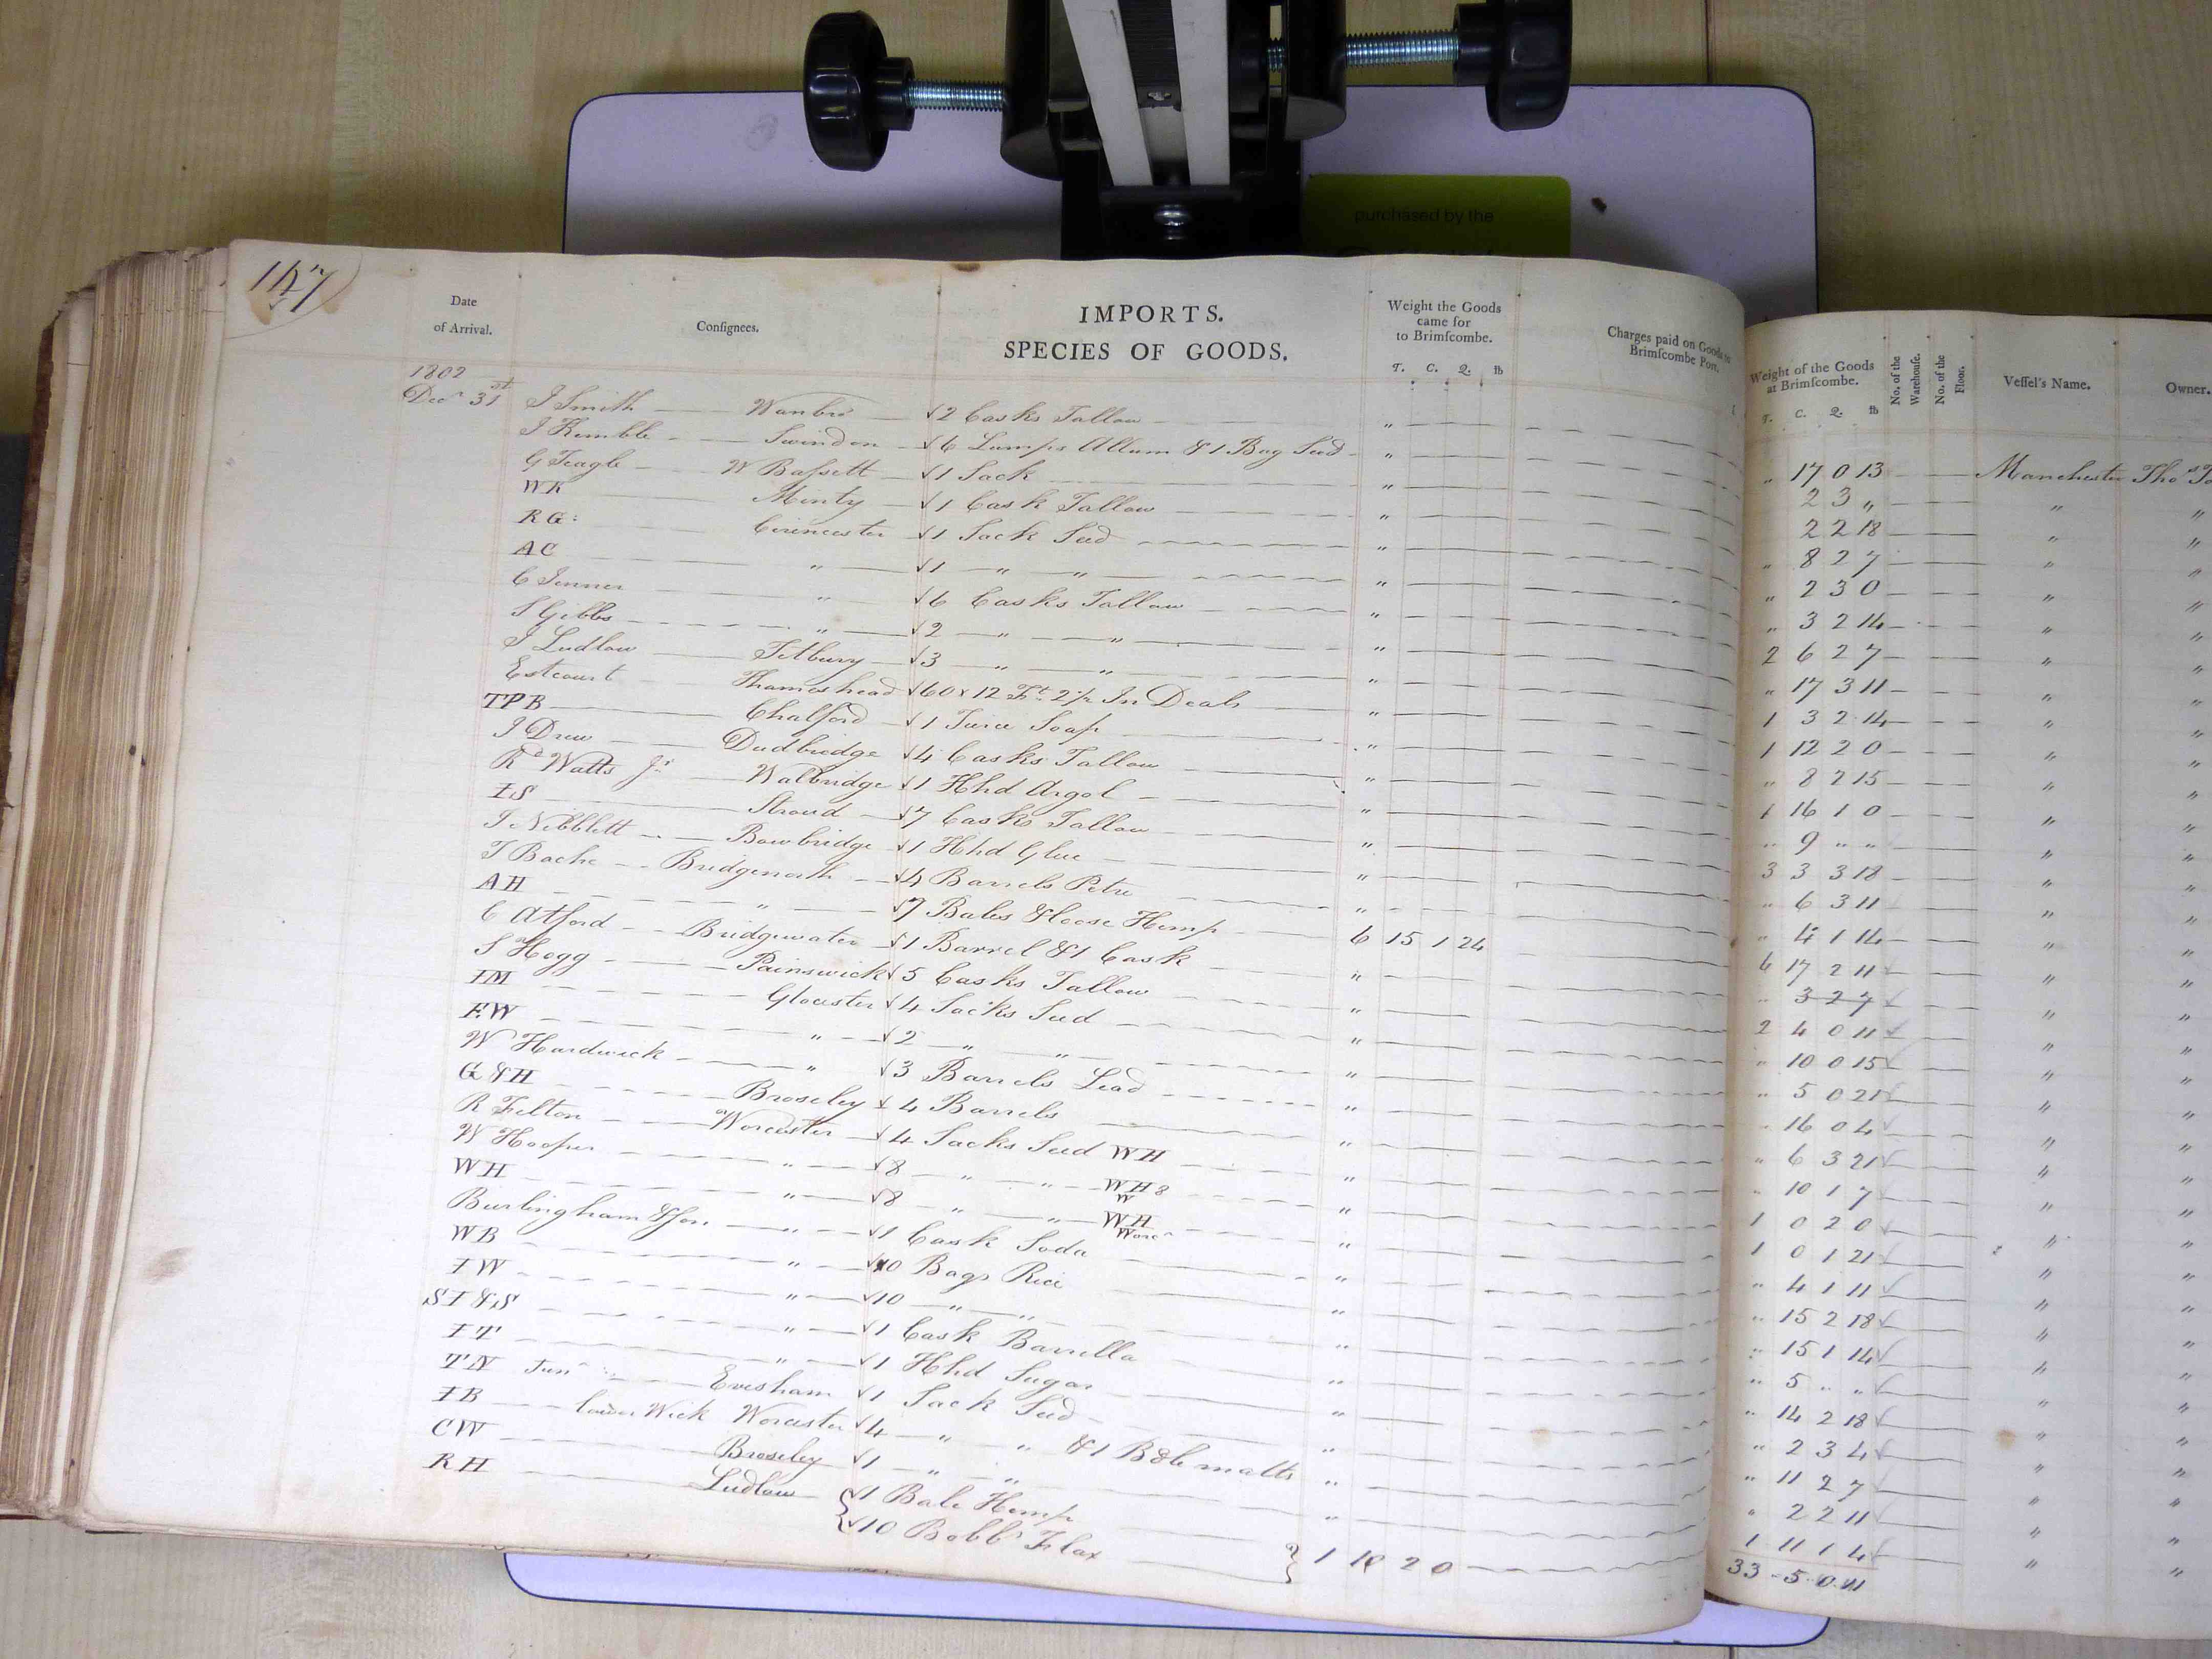 purchased by the
147
Date of Arrival. Consignees. IMPORTS. SPECIES OF GOODS. Weight the Goods came for to Brimscombe. T. C. Q. lb Charges paid on Goods to Brimscombe Port. Weight of the Goods at Brimscombe. T. C. Q. lb No. of the Warehouse. No. of the Floor. Vessel's Name. Owner.
1802
Decr 31st I Smith Wanbro 2 Casks Tallow " " 17 0 13 Manchester Thos
I Kemble Swindon 6 Lumps Allum & 1 Bag Seed " 2 3 " " "
G Teagle W Bassett 1 Sack " 2 2 18 " "
WK Minty 1 Cask Tallow " " 8 2 7 " "
RG: Cirencester 1 Sack Seed " " 2 3 0 " "
AC " 1 " " " " 3 2 14 " "
C Jenner " 6 Casks Tallow " 2 6 2 7 " "
S Gibbs " 2 " " " " 17 3 11 " "
I Ludlow Tetbury 3 " " " 1 3 2 14 " "
Estcourt Thameshead 60 x 12 Ft 2 1/2 In Deals " 1 12 2 0 " "
TPB Chalford 1 Turce Soap " " 8 2 15 " "
I Drew Dudbridge 4 Casks Tallow " 1 16 1 0 " "
Rd Watts Jr Walbridge 1 Hhd Argol " " 9 " " " "
IS Stroud 7 Casks Tallow " 3 3 3 18 " "
I Nibblett Bowbridge 1 Hhd Glue " " 6 3 11 " "
T Bache Bridgenorth 4 Barrels Petre " " 4 1 14 " "
AH " 7 Bales & loose Hemp 6 15 1 24 6 17 2 11 " "
C Atford Bridgewater 1 Barrel & 1 Cask " " 3 2 7 " "
S Hogg Painswick 5 Casks Tallow " 2 4 0 11 " "
IM Glocester 4 Sacks Seed " " 10 0 15 " "
EW " 2 " " " " 5 0 21 " "
W Hardwick " 3 Barrels Lead " " 16 0 4 " "
G & H Broseley 4 Barrels " " 6 3 21 " "
R Felton Worcester 4 Sacks Seed WH " " 10 1 7 " "
W Hooper " 8 " " WH 8 W " 1 0 2 0 " "
WH " 8 " " WH Worcr " 1 0 1 21 " "
Burlingham & Son " 1 Cask Soda " " 4 1 11 " "
WB " 10 Bags Rice " " 15 2 18 " "
IW " 10 " " " " 15 1 14 " "
SI & S " 1 Cask Barrella " " 5 " " " "
IT " 1 Hhd Sugar " " 14 2 18 " "
TN Junr Evesham 1 Sack Seed " " 2 3 4 " "
IB lower Wick Worcester 4 " " & 1 Bdle matts " " 11 2 7 " "
CW Broseley 1 " " " " 2 2 11 " "
RH Ludlow 1 Bale Hemp 1 11 1 4 " "
10 Bobbs Flax 1 10 2 0 33 5 0 11